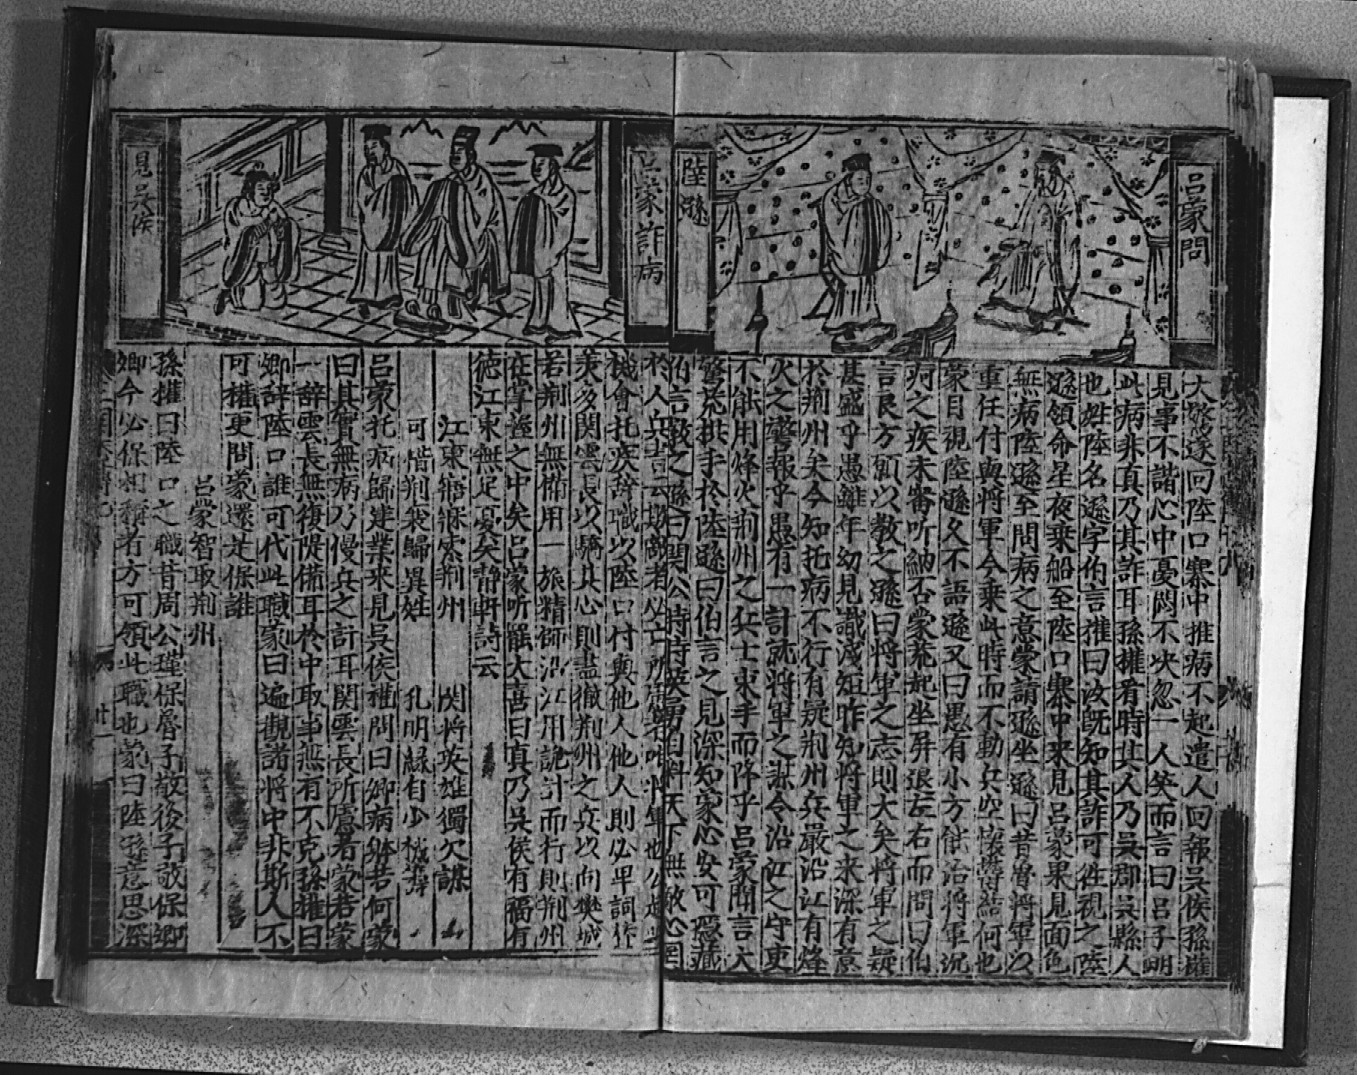 呂蒙問
陸遜
大驚遂回陸口寨中推病不起遣人回報吳侯孫權
見事不諧心中憂悶不决忽一人笑而言曰呂子明
此病非真乃其詐耳孫權看時其人乃吳郡吳縣人
也姓陸名遜字伯言權曰汝既知其詐可徃視之陸
遜領命星夜乗船至陸口寨中來見呂蒙果見面色
無病陸遜至問病之意蒙請遜坐遜曰昔督將軍以
重任付與将軍今乗此時而不動兵空懷結何也
蒙目視陸遜久不語遜又曰愚有小方能治將軍沉
疴之疾未審听納否蒙荒起坐屏退左右而問曰伯
言良方願以教之遜曰将軍之志則大矣將軍之疑
甚盛乎愚雖年幼見識淺短昨知將軍之來深有意
於荆州矣今知托病不行有疑荆州兵嚴沿江有烽
火之警報乎愚有一計就將軍之源令沿江之守吏
不能用烽火荆州之兵士束手而降乎呂蒙聞言大
驚荒拱手於陸遜曰伯言之見深知蒙心安可隱藏
伯言教之遜曰関公恃英勇自料天下無敵心
呂蒙詐病
見吳侯
機會托疾辞職以陸口付與他人他人則必卑詞作
美多関雲長以驕其心則盡徹荆州之兵以向樊城
若荆州無備用一旅精師沿江用詭計而行則荆州
在掌握之中矣呂蒙听罷大喜曰真乃吳侯有福有
徳江東無足憂矣靜軒詩云
江東寤寐索荆州 関將英雄獨欠謀
可惜荆襄歸異姓 孔明緑有少機籌
呂蒙托病歸建業來見吳侯權問曰卿病躰若何蒙
曰其實無病乃慢兵之計耳関雲長所慮者蒙若蒙
一辞雲長無復隄備耳於中取事無有不克孫權曰
卿辞陸口誰可代此職蒙曰遍觀諸将中非斯人不
可權更問蒙還是保誰
呂蒙智取荆州
孫權曰陸口之職昔周公瑾保魯子敬後子敬保卿
卿今必保相稱者方可領此職也蒙曰陸遜意思深
廿一